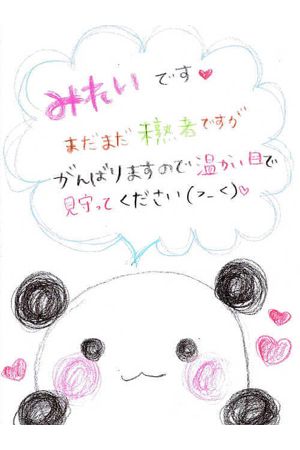 みれいです♥
まだまだ未熟者ですが
がんばりますので温かい目で
見守ってください(>_<)♡